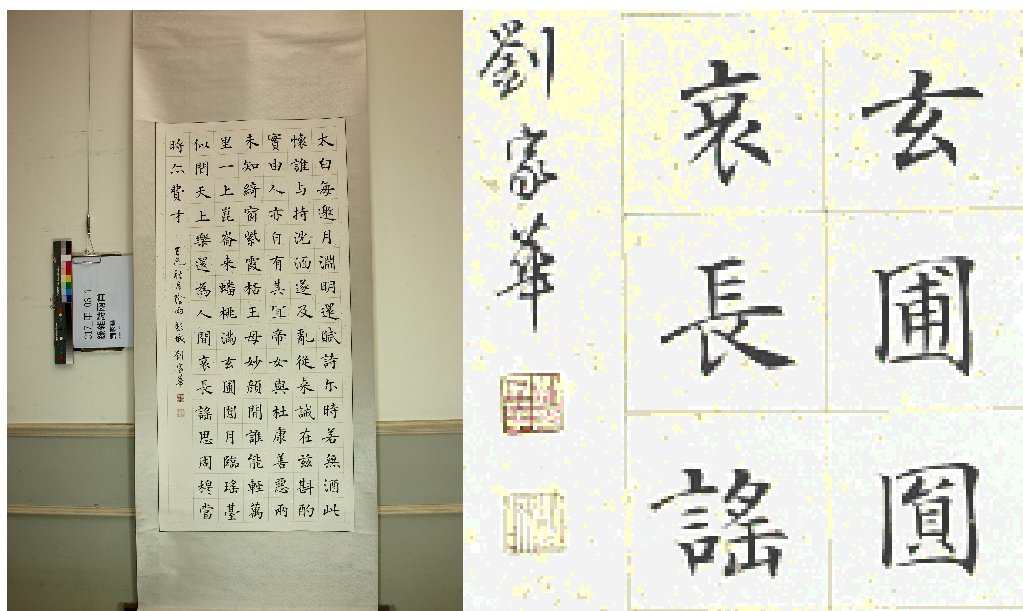 太白每邀月淵明還賦詩尔時若無酒此
懷誰与持沈湎遂及亂從来誡在茲斟酌
實由人亦自有其宜帝女與杜康善惡兩
未知綺窗紫霞桮王母妙顏開誰能輕萬
里一上崑崙来蟠桃滿玄圃圓月臨瑤臺
似聞天上樂還為人間哀長謠思周穆當
時亦費才
陰雨彭城劉家華
玄圃圓
哀長謠
劉家華